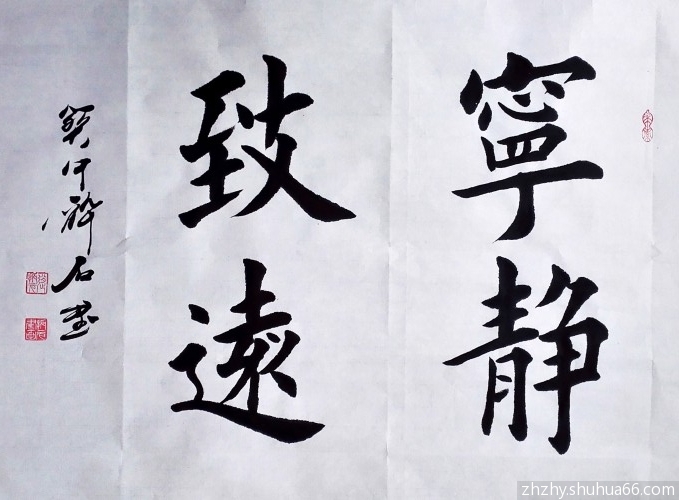 寧静
致遠
石書
zhzhy.shuhua66.com